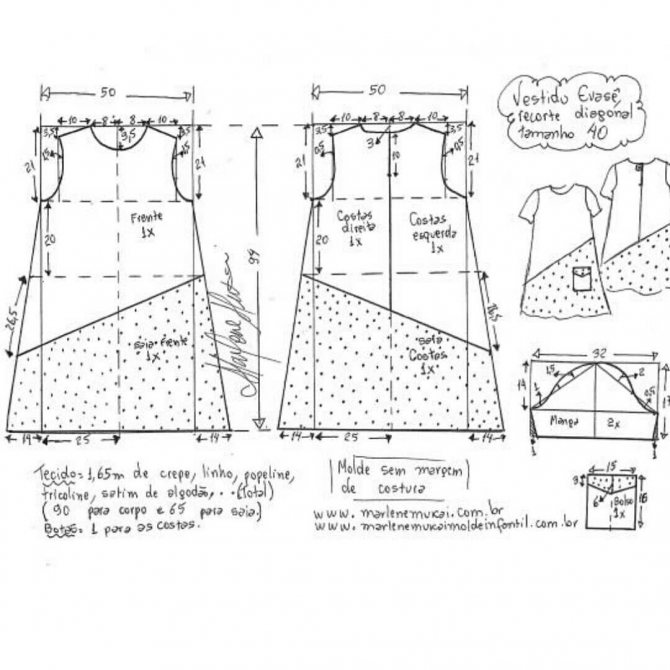 Vestido Evasê
recorte diagonal
tamanho 40
50
10 8 8 10
3,5 3,5 3,5
21 1,5 1,5 21
Frente
1x
20
26,5
saia frente
1x
14 25 14
99
50
10 8 8 10
3,5 3 3,5
21 0,5 10 0,5 21
Costas
direita
1x
Costas
esquerda
1x
20
26,5
saia
Costas
1x
14 25 14
32
14 1,5 2 17
1 0,5
Manga 2x
1
15
3
6 Bolso
1x
16
Tecido= 1,65m de crepe, linho, popeline,
tricoline, satim de algodão, . . (total)
( 90 para corpo e 65 para saia)
Botão= 1 para as costas.
Molde sem margem
de costura
www. marlenemukai.com.br
www. marlenemukaimoldeinfantil.com.br